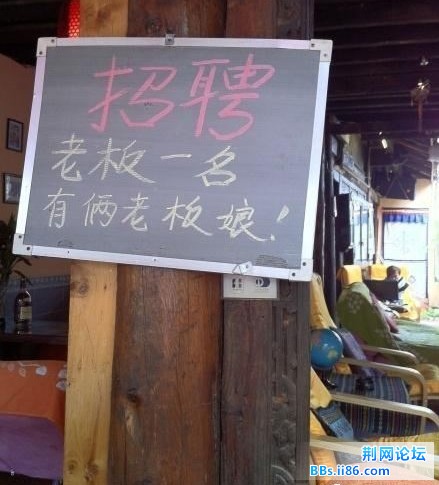 招聘
老板一名
有俩老板娘!
荆网论坛
BBs.ii86.com